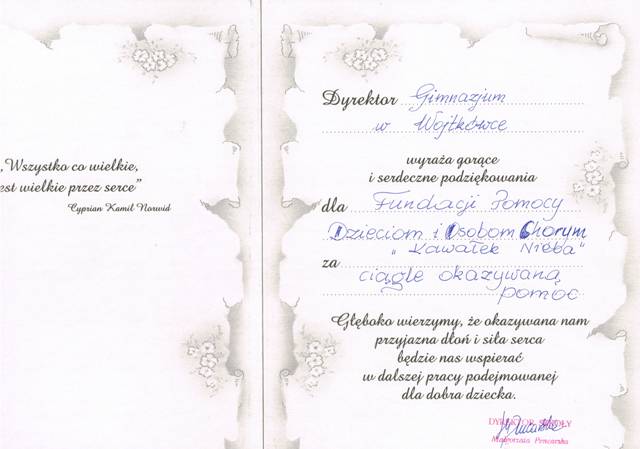 „Wszystko co wielkie,
est wielkie przez serce”
Cyprian Kamil Norwid
Dyrektor Gimnazjum
w Wojtkówce
wyraża gorące
i serdeczne podziękowania
dla Fundacji Pomocy
Dzieciom i Osobom Chorym
"Kawałek Nieba"
za ciągle okazywaną
pomoc
Głęboko wierzymy, że okazywana nam
przyjazna dłoń i siła serca
będzie nas wspierać
w dalszej pracy podejmowanej
dla dobra dziecka.
DYREKTOR SZKOŁY
Małgorzata